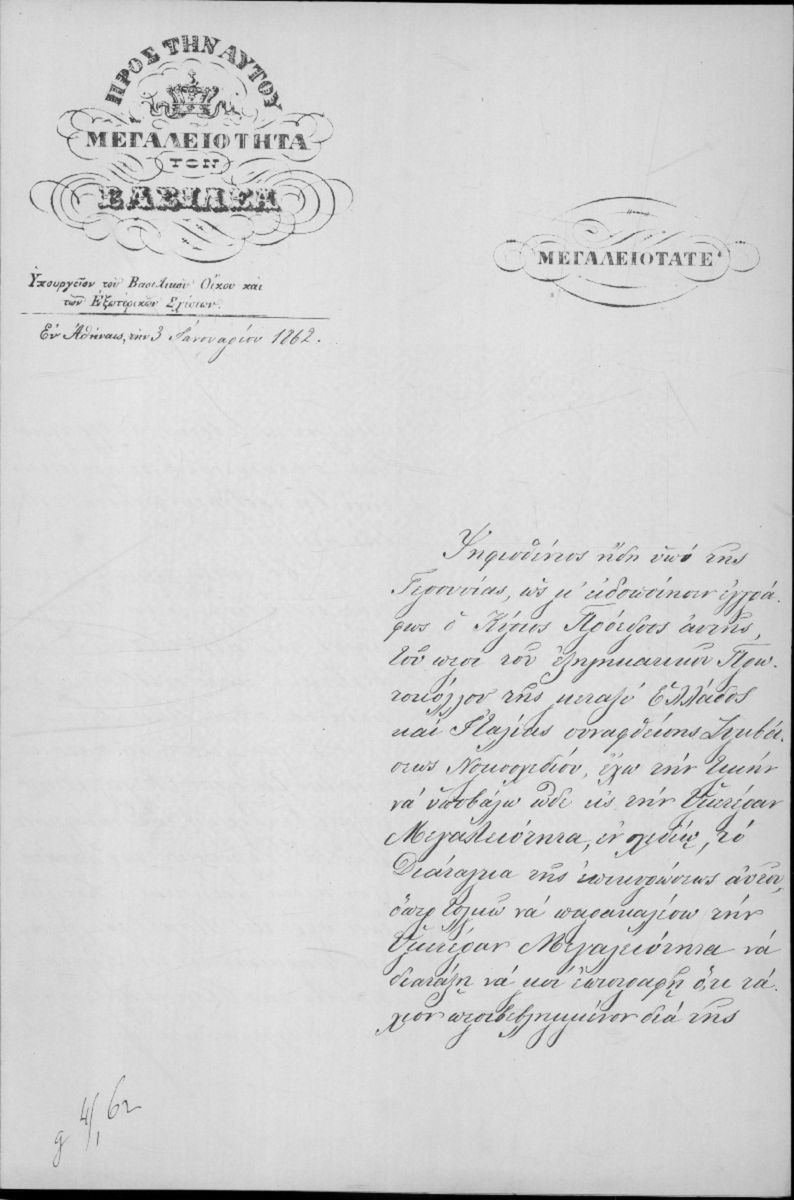 ΠΡΟΣ ΤΗΝ ΑΥΤΟΥ
ΜΕΓΑΛΕΙΟΤΗΤΑ
ΤΟΝ
ΒΑΣΙΛΕΑ
Ὑπουργεῖον τοῦ Βασιλικοῦ Οἴκου καὶ
τῶν Ἐξωτερικῶν Σχέσεων.
Ἐν Ἀθήναις, τὴν 3 Ἰανουαρίου 1862.
ΜΕΓΑΛΕΙΟΤΑΤΕ
Ψηφισθέντος ἤδη ὑπὸ τῆς
Γερουσίας, ὡς μ' εἰδοποίησεν ἐγγρά-
φως ὁ Κύριος Πρόεδρος αὐτῆς,
τοῦ περὶ τοῦ Πρω-
τοκόλλου τῆς μεταξὺ Ἑλλάδος
καὶ Ἰταλίας συναφθείσης Συμβά-
σεως ἔχω τὴν τιμὴν
νὰ ὑποβάλω ὧδε εἰς τὴν Ὑμετέραν
Μεγαλειότητα, ἐν σχεδίῳ, τὸ
Διάταγμα τῆς ἐπικυρώσεως αὐτοῦ,
ὅπερ τολμῶ νὰ παρακαλέσω τὴν
Ὑμετέραν Μεγαλειότητα νὰ
διατάξῃ νὰ μοὶ ἐπιστραφῇ ὅ,τι τά-
χιον περιβεβλημμένον διὰ τῆς
4/1 62